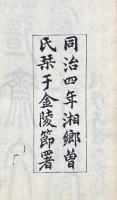 同治四年湘鄉曾
氏栞于金陵節署